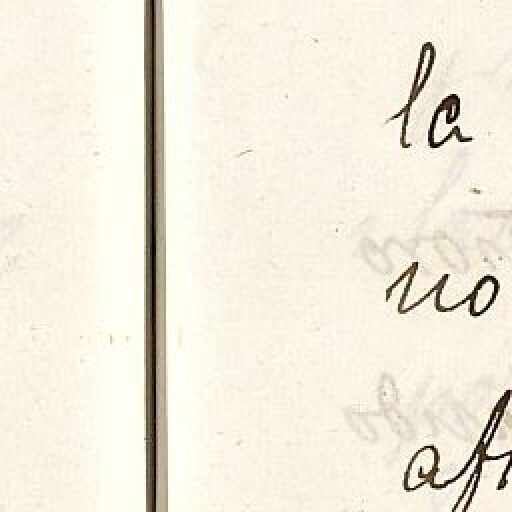 la
no
afi